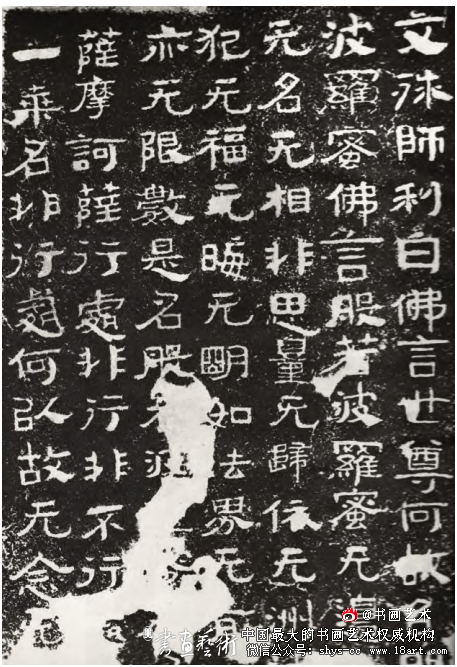 文殊師利白佛言世尊何故名
波羅蜜佛言般若波羅蜜无邊
无名无相非思量无歸依无洲
犯无福无晦无明如法界无
亦无限數是名般若波
薩摩訶薩行處非行非不行
一乘名非行處何以故无念无
@书画艺术
書畫藝術
中国最大的书画艺术权威机构
微信公众号:shys-cc www.18art.com